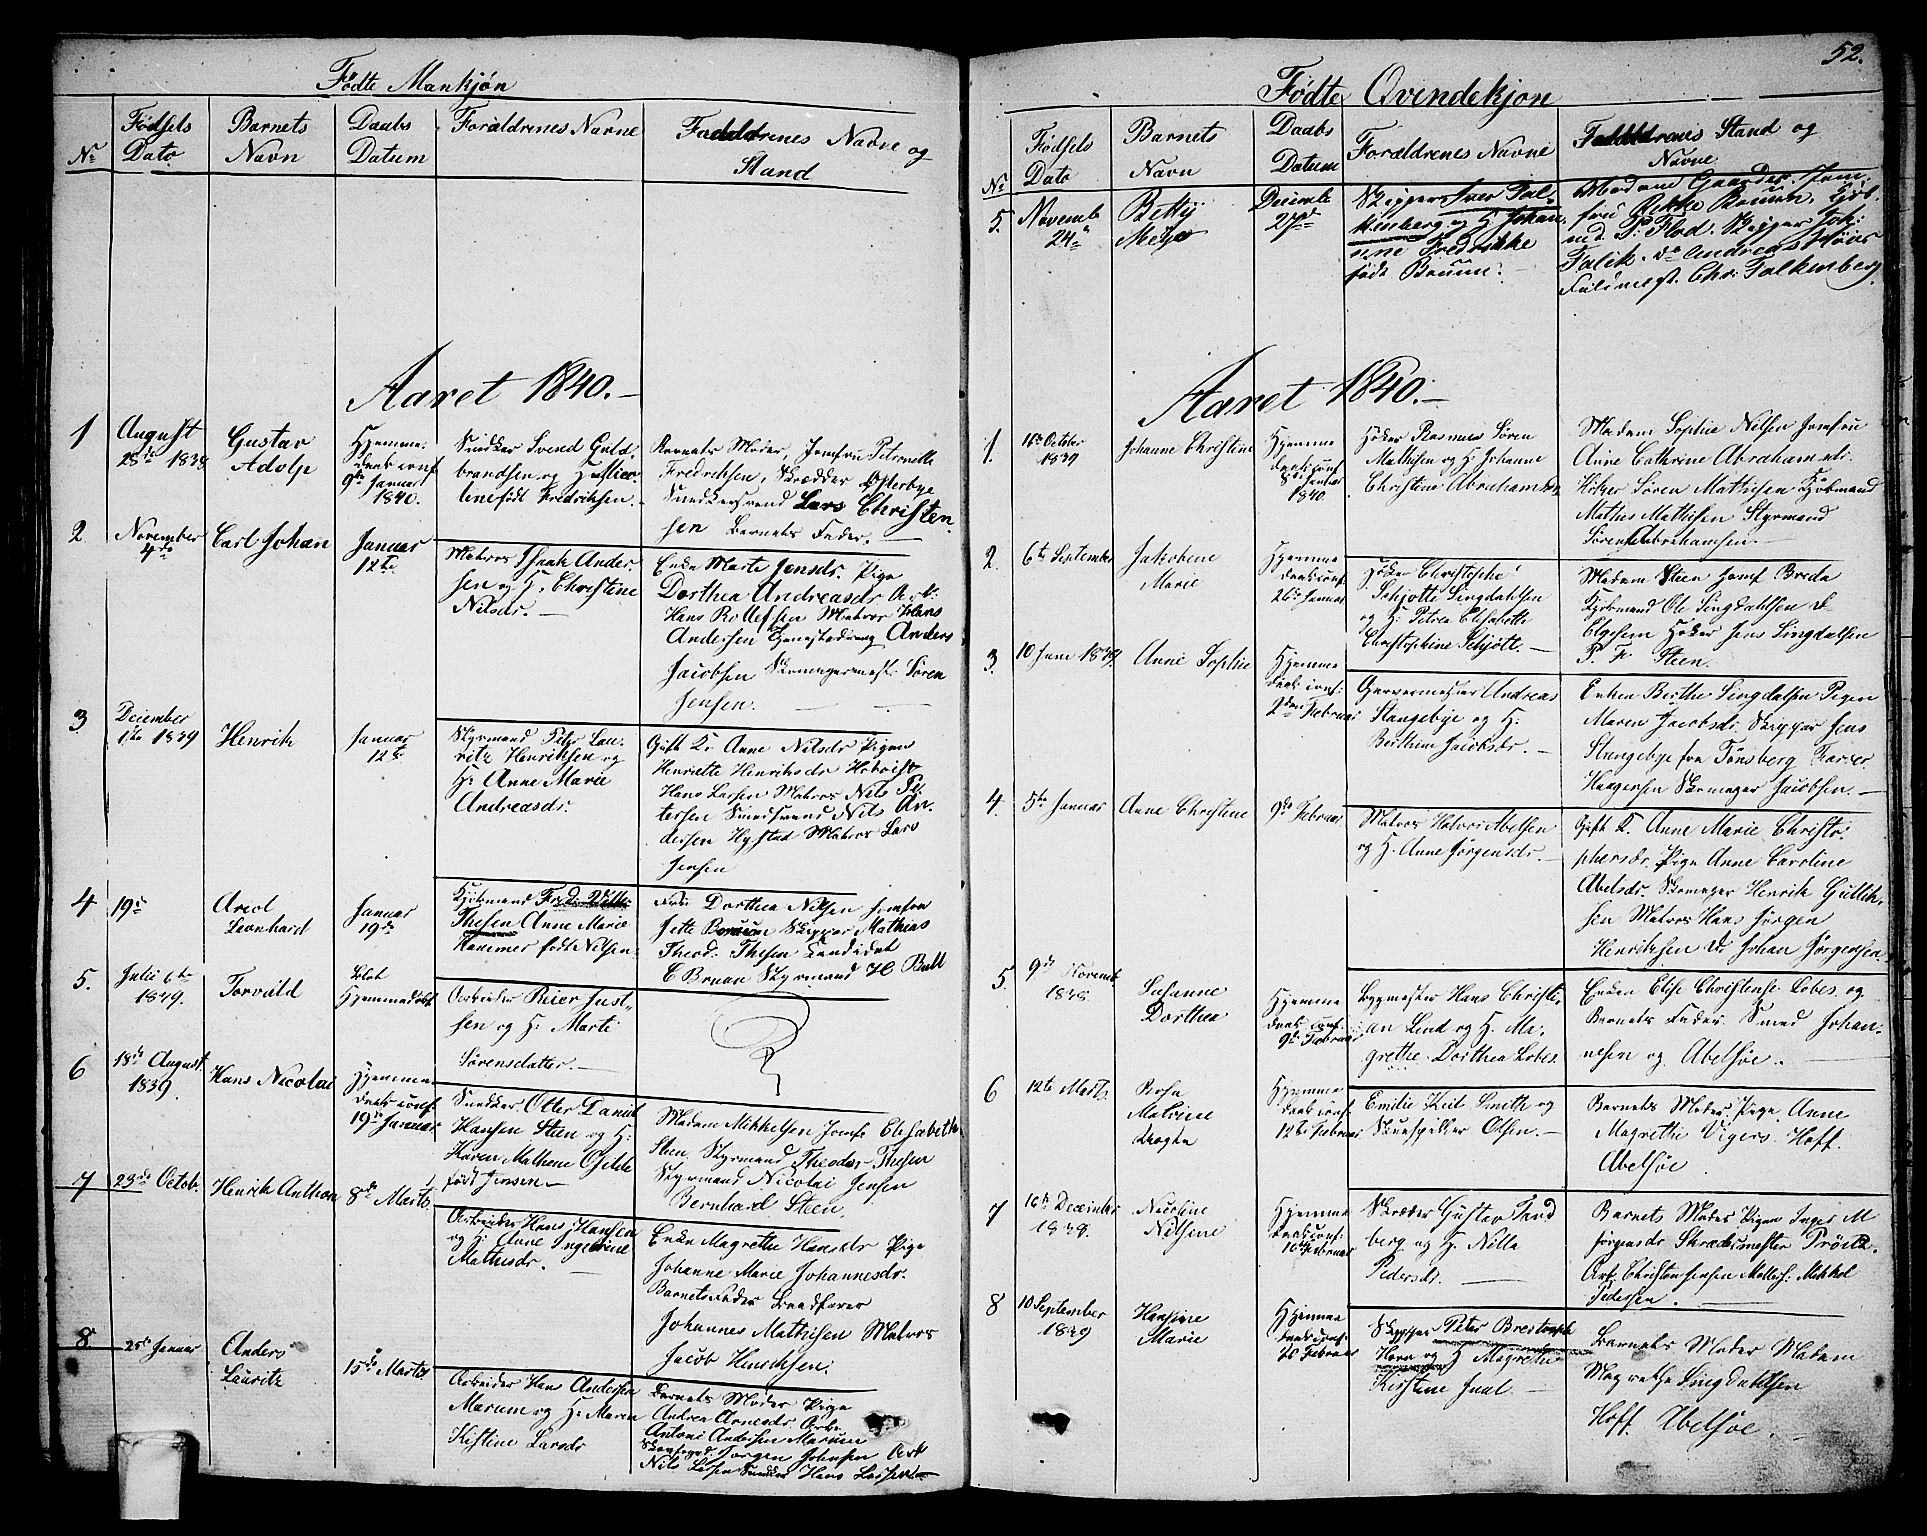 52.
Fødte Mankjøn
No
Fødsels Dato
Barnets Navn
Daabs Datum
Forældrenes Navne
Fadderenes Navne og Stand
Aaret 1840.
1
August 28de 1838
Gustav Adolp
Hjemme daab conf 9de Januar 1840.
Snedker Svend Guldbrandsen og H:
født Fredriksen.
Barnets Moder, Jomfru Petronelle
Fredriksen, Skrædder Østerbye
Snedkersvend Lars Christensen
Barnets Fader.
2
November 4de
Carl Johan
Januar 12te
Matros Isaak Andersen
og H: Christine
Nilsdr.
Enke Marte Jensdr. Pige
Dorthea Andreasdr Arb:
Hans Rollefsen Matros Hans
Andersen Anders
Jacobsen Skomagermest: Søren
Jensen.
3
December 1te 1839
Henrik
Januar 12te
Styrmand Peter Lauritz
Henriksen og
H: Anne Marie
Andreasdr.
Gift K: Anne Nilsdr Pigen
Henriette Henriksdr
Hans Larsen Matros Nils Petersen
Smedsvend Nils Andersen
Hystad Matros Lars
Jensen
4
19de
Arod Leonhard
Januar 19de
Kjøbmand Fred. Wilh.
Thesen Anne Marie
født Nilsen
Fru Dorthea Nilsen Jomfru
Jette Skipper Mathias
Theod. Thesen Candidat
C Bruun Styrmand H Bull
5.
Julii 6te 1839.
Torvald
blot Hjemmedøbt
Arbeider Reier Justsen
og H: Marti
Sørensdatter.
6
18de August 1839.
Hans Nicolai
Hjemme daab conf. 19de Januar
Snedker Otter Daniel
Hansen Steen og H:
Karen Mathene
født Jensen
Madam Mikkelsen Jomfr Elisabeth
Steen, Styrmand Theodor Thesen
Styrmand Nicolai Jensen
Bernhard Steen.
7
23de Octob.
Henrik Anthon
8de Marts
Arbeider Hans Hansen
og H: Anne Ingebrine
Mathisdr.
Enke Magrethe Hansdr Pige
Johanne Marie Johannesdr.
Barnets Fader
Johannes Mathisen Matros
Jacob Henriksen.
8
25de Januar
Anders Lauritz
15de Marts
Arbeider Hans Andersen
Marum og H: Maren
Kistine Larsdr
Barnets Moder Pige
Andrea Arnesdr Arb
Antoni Andersen Marum
Jørgen Johnsen Ark
Nils Snedker Hans
Fødte Qvindekjøn
No
Fødsels Dato
Barnets Navn
Daabs Datum
Forældrenes Navne
Fadderenes Stand og Navne
5.
November 24de
Betty Metze
December 27de
Skipper Iver Falkenberg
og H: Johanne
Fredrikke
født Bruun.
Madam Gaarder Jomfru
Rikke Bruun, Kjøbmd.
P. Flod. Skipper
Falik. do Andreas
Chr. Falkenberg.
Aaret 1840.
1.
16de October 1839
Johanne Christine
Hjemme daab conf 8de Januar 1840.
Høker Rasmus Søren
Mathisen og H: Johanne
Christine Abrahamsen
Madam Sophie Nilsen Jomfru
Anne Cathrine Abrahamsdr.
Høker Søren Mathisen Kjøbmand
Mathis Mathisen Styrmand
Søren Abrahamsen.
2.
6te September
Jakobine Marie
Hjemme daab conf. 26de Januar
Høker Christopher
Schjøtte Lingdahlsen
og H: Petrea Elisabeth
Christophine Schjøtt.
Madam Steen Jomf Breda
Kjøbmand Ole Lingdahlsen do
Høker Jens Lingdalsen
P. F. Steen.
3.
10 Juni 1839.
Anne Sophie
Hjemme daab conf: 2den Februar
Garvermester Andreas
Stangebye og H:
Berthine Jacobsdr.
Enken Berthe Lingdalsen Pigen
Maren Jacobsdr. Skipper Jens
Stangebye fra Tønsberg Farver
Haagensen Skomager Jacobsen.
4.
5te Januar
Anne Christine
9de Februar
Matros Halvor Abelsen
og H. Anne Jørgensdr.
Gift K. Anne Marie Christophersdr.
Pige Anne Caroline
Abelsdr. Skomager Henrik Gulliksen
Matros Hans Jørgen
Henriksen do Johan Jørgensen.
5.
9de Novemb. 1838.
Susanne Dorthea
Hjemme daab conf. 9de Februar
Bygmester Hans Christian
Lind og H. Magrethe
Dorthea Lobes.
Enken Elise Christense Lobes. og
Barnets Fader Smed Johannesen
og Abelsøe.
6
12te Marts
Rosa Malvine Drogta
Hjemme daab conf. 12te Februar
Emilie Keil Smith og
Skuespiller Olsen.
Barnets Moder. Pige Anne
Magrethe Vigers. Hoff.
Abelsøe.
7
16de December 1838.
Nicoline Nilsine
Hjemme daab conf. 16de Februar
Skræder Gustav Sandberg
og H. Nilla
Pedersdr.
Barnets Moder Pigen Inger M
Jørgensdr Skrædermester
Arb. Christen Jensen Mikkel
Pedersen.
8
10 September 1839
Hansine Marie
Hjemme daab conf. 26 Februar
Skipper Peter
Horn og H Magrethe
Kirstine Juul.
Barnets Moder Madam
Magrethe Lingdahlsen
Hoff. Abelsøe.